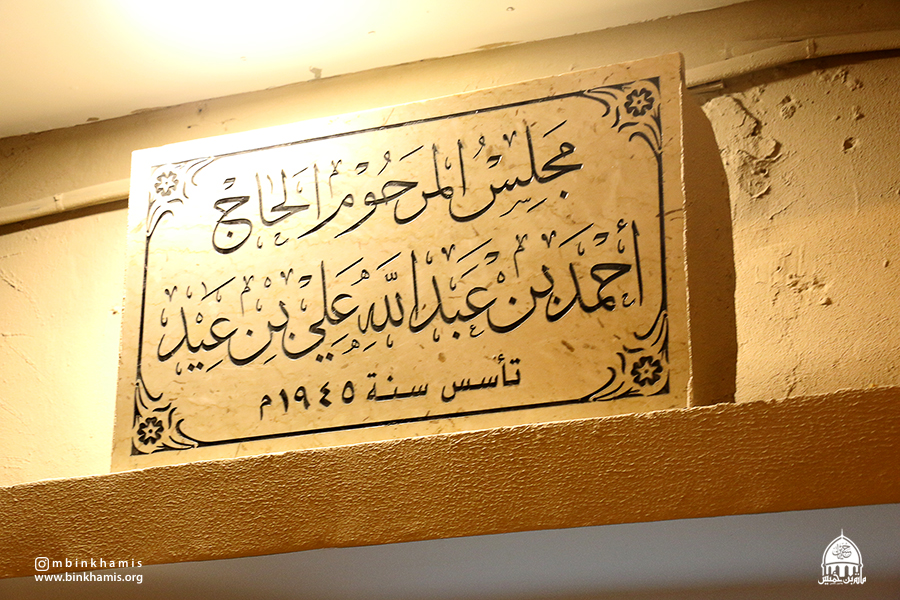 مَجْلِسُ المَرحُوْم الحَاجْ
أَحْمَد بِن عَبْد اللَّه عَلِي بِن عِيد
تأسس سنة ١٩٤٥م
mbinkhamis
www.binkhamis.org